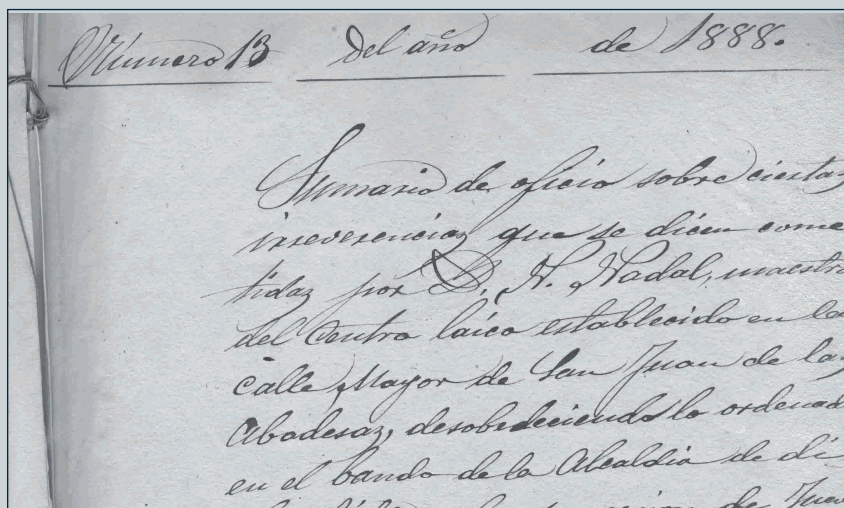 Número 13 del año de 1888.
Sumario de oficio sobre ciertas
irreverencias que se dicen come
tidas por D. N. Nadal, maestro
del Centro laico establecido en la
calle Mayor de San Juan de las
Abadesas, desobedeciendo lo ordenad
en el bando de la Alcaldia de di
de Juev